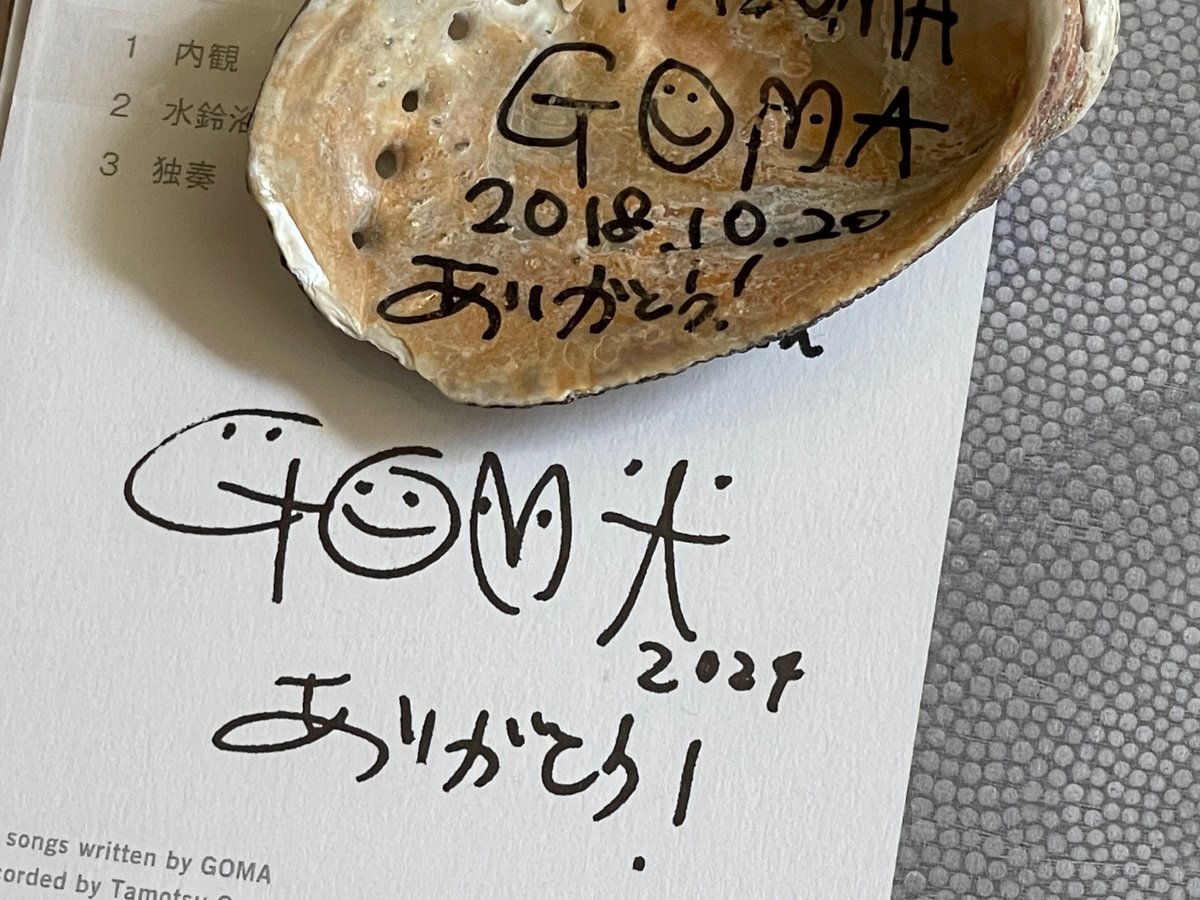 GOMA
2018.10.20
ありがとう!
1 内観
2 水鈴
3 独奏
GOMA
2024
ありがとう!
songs written by GOMA
by Tamotsu